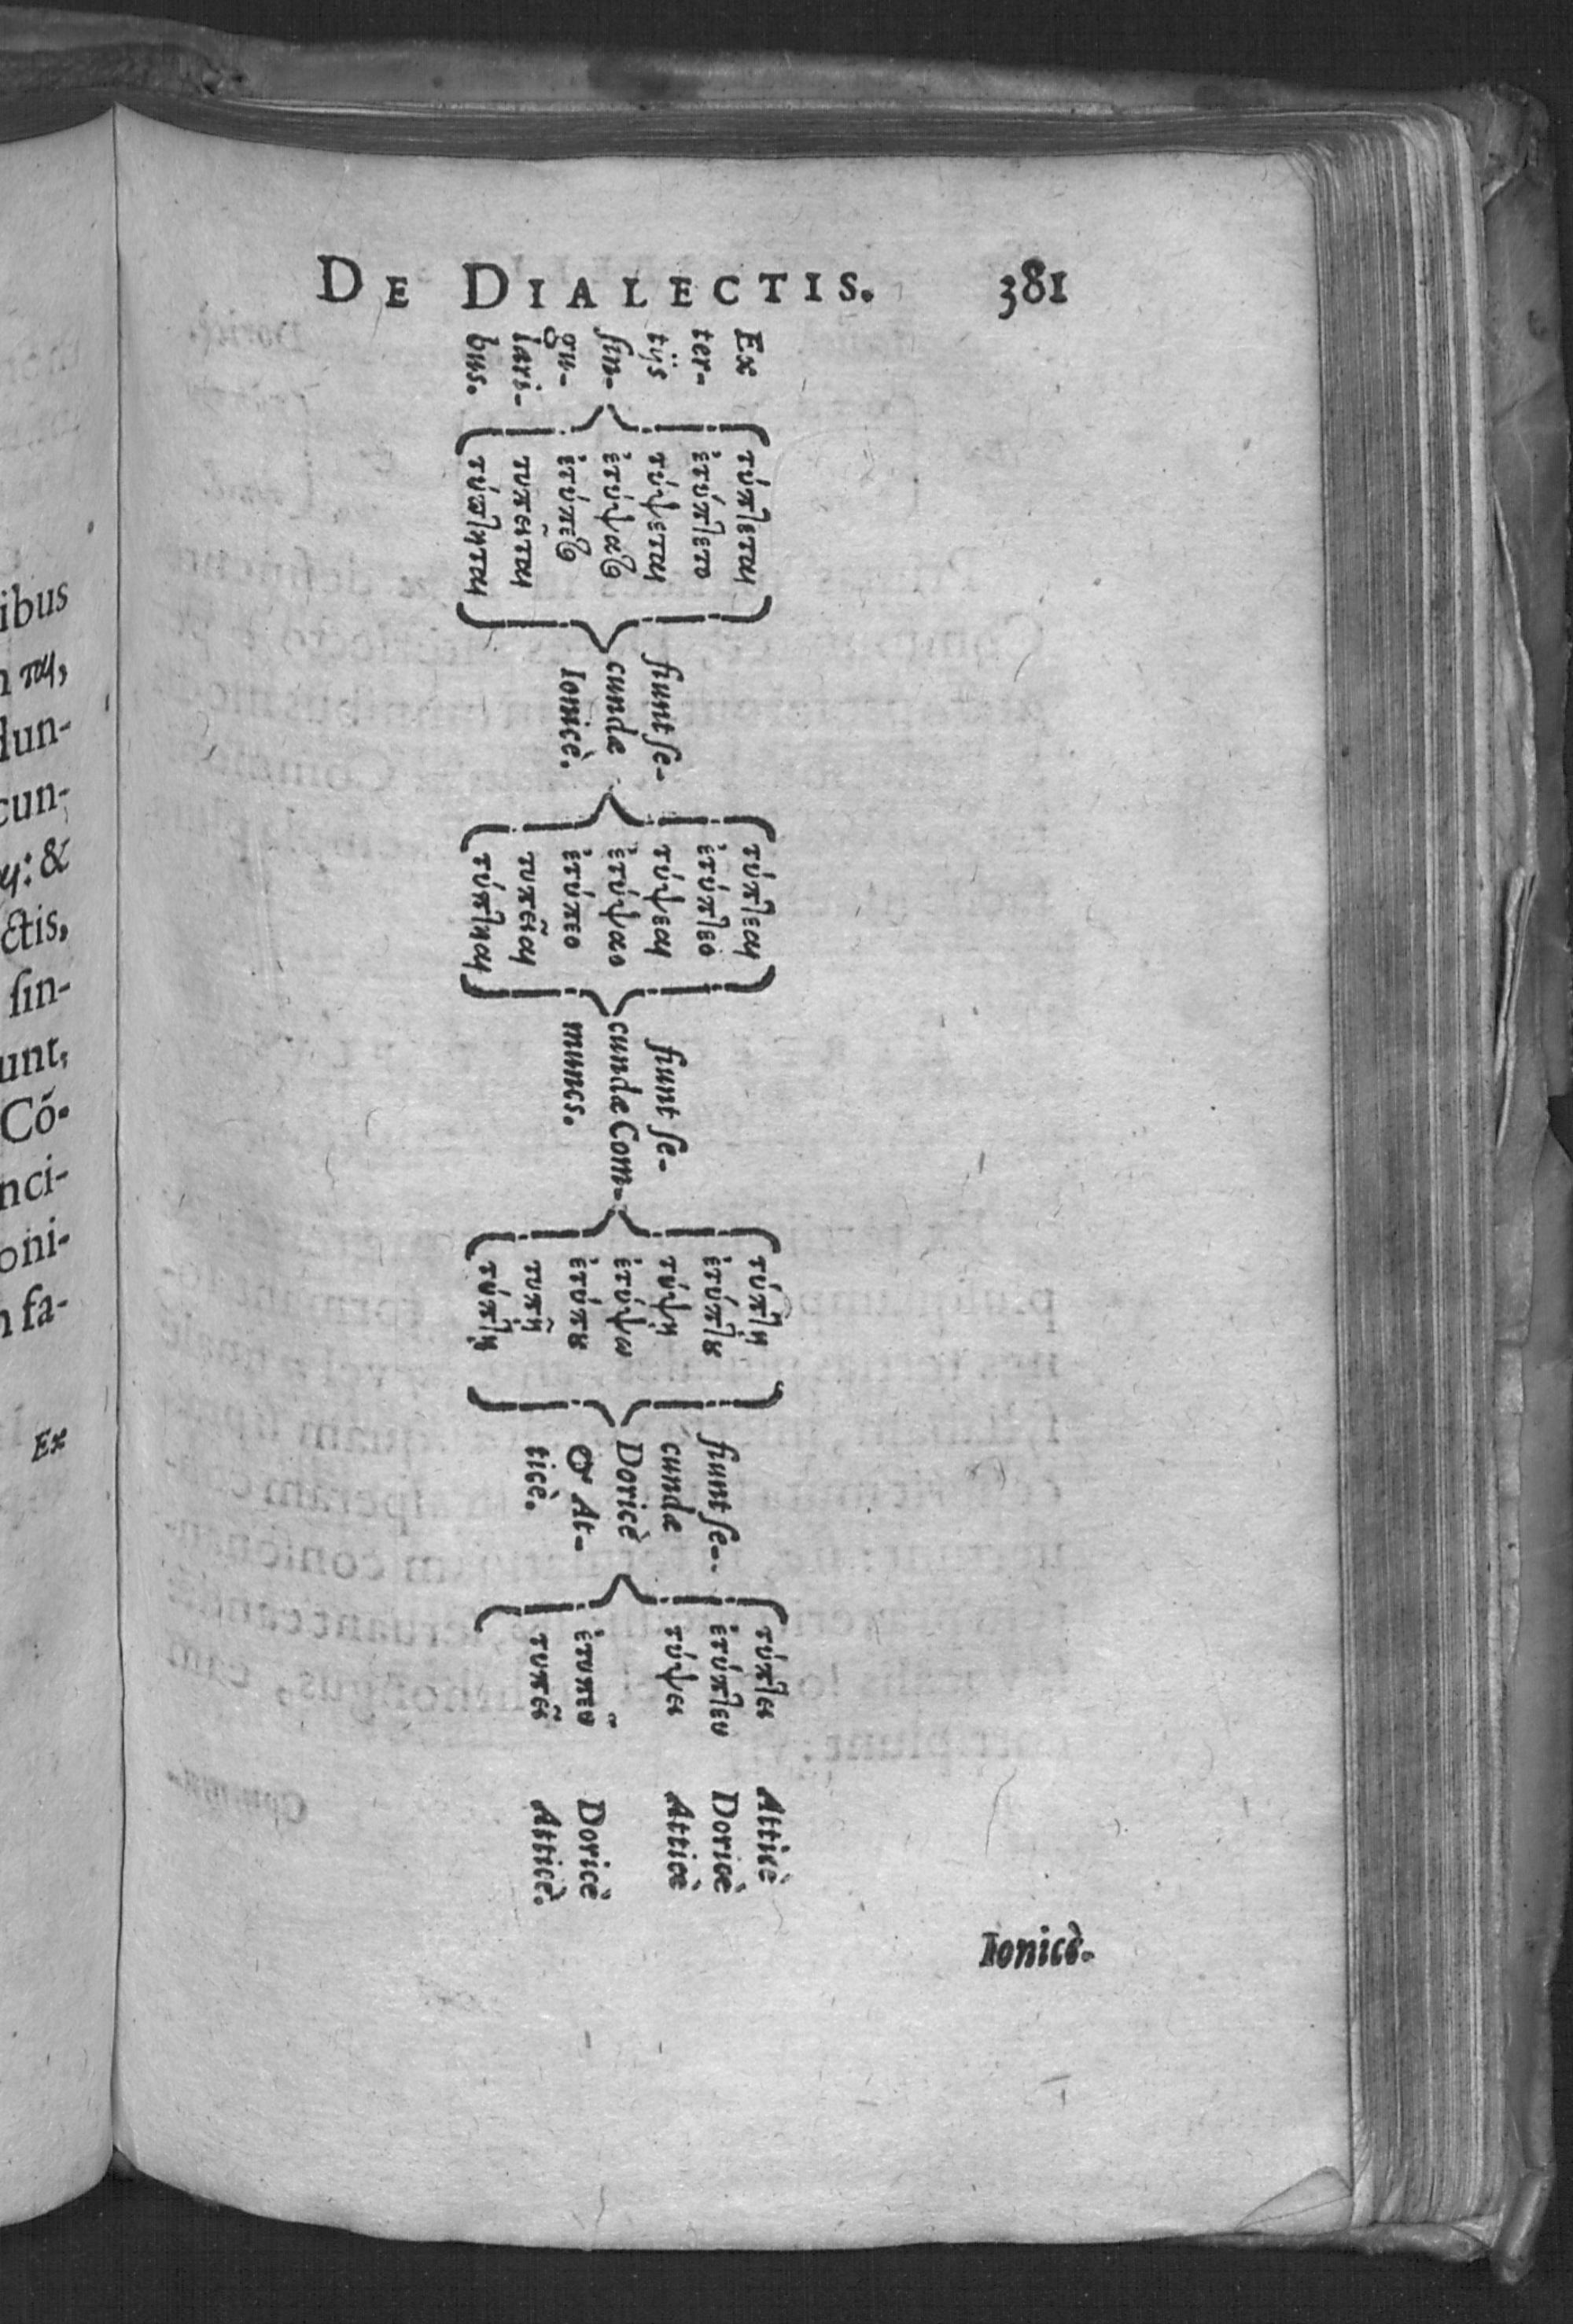 DE DIALECTIS. 381
Ex
ter-
tijs
sin-
gu-
lari-
bus.
τύπτεται
ἐτύπτετο
τύψεται
ἐτύψατο
ἐτύπετο
τυπεῖται
τύπτηται
fiunt se-
cundæ
Ionicè.
τύπτεαι
ἐτύπτεο
τύψεαι
ἐτύψαο
ἐτύπεο
τυπεῖαι
τύπτηαι
fiunt se-
cundæ Com-
munes.
τύπτῃ
ἐτύπτȣ
τύψῃ
ἐτύψω
ἐτύπȣ
τυπῇ
τύπτῃ
fiunt se-
cundæ
Doricè
& At-
ticè.
τύπτει
ἐτύπτευ
τύψει
ἐτυπεῦ
τυπεῖ
Atticè
Doricè
Atticè
Doricè
Atticè.
Ionicè.
ibus
n ται,
dun-
cun-
αι: &
ctis,
sin-
unt,
Cō-
nci-
oni-
n fa-
Ex